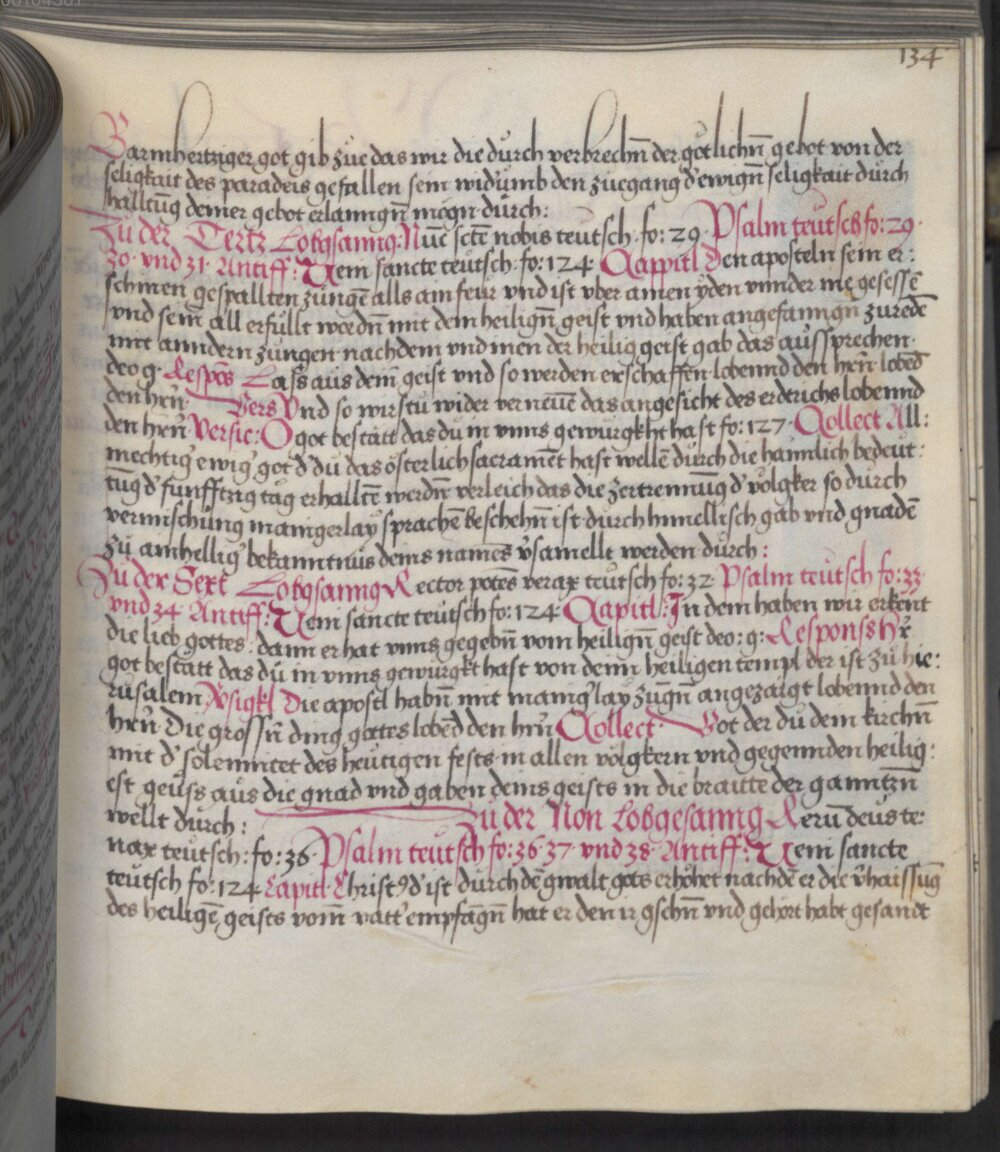 134
Barmhertziger got gib zue das wir die durch verbrechn̄ der gotlichn̄ gebot von der
seligkait des paradeis gefallen sein widumb den zuegang d'ewign̄ seligkait durch
halltūg deiner gebot erlanngn̄ mogn durch:
Zu der Tertz Lobgsanng: Nūc sctē nobis teutsch. fo: 29. Psalm teutsch fo: 29.
30. vnd 31. Antiff: Veni sancte teutsch. fo: 124. Cappitl Den aposteln sein er:
schinen gespallten zungē alls ain feur vnd ist vber ainen yden vnnder inē gesessē
vnd sein all erfullt wordn̄ mit dem heilign̄ geist vnd haben angefanngn̄ zuredē
mit anndern zungen nachdem vnd inen der heilig geist gab das aussprechen.
deo g. Respōs Lass aus dein geist vnd so werden erschaffen. lobennd den hrn̄ lobēd
den hrn̄. Vers Vnd so wirstu wider verneuē das angesicht des erderichs lobennd
den hrn̄ Versic: O got bestatt das du in vnns gewurgkht hast fo: 127. Collect All:
mechtig' ewig' got d' du das osterlich sacramēt hast wellē durch die haimlich bedeut:
tūg d' funfftzig tag erhalltē werdn̄ verleich das die zertrennūg d' volgker so durch
vermischung manigerlay sprachē beschehn̄ ist durch himellisch gab vnd gnadē
zu ainhellig' bekanntnus deins namēs v̄samellt werden durch:
Zu der Sext Lobgsanng Rector potēs verax teutsch fo: 32. Psalm teutsch fo: 33.
vnd 34 Antiff: Veni sancte teutsch fo: 124. Capitl: In dem haben wir erkent
die lieb gottes. dann er hat vnns gegebn̄ vom heilign̄ geist deo: g: Respons Hr̄
got bestatt das du in vnns gewurgkt hast von deinn̄ heiligen templ der ist zu hie:
rusalem Vsigkl Die apostl habn̄ mit manig'lay zūgn̄ angezaigt lobennd den
hrn̄. Die grossn̄ ding gottes lobēd den hrn̄ Collect. Got der du dein kirchn̄
mit d' solennitet des heutigen fests in allen volgkern vnd gegennden heilig:
est geuss aus die gnad vnd gaben deins geists in die braitte der ganntzn̄
wellt durch: Zu der Non Lobgesanng Rerū deus te:
nax teutsch: fo: 36. Psalm teutsch fo: 36. 37 vnd 38. Antiff: Veni sancte
teutsch fo: 124 Capitl. Christ9 d' ist durch dē gwalt gots erhöhet nachdē er die v̄haissūg
des heiligē geists vom vatt' empfagn̄ hat er den ir gsehn̄ vnd gehort habt gesandt